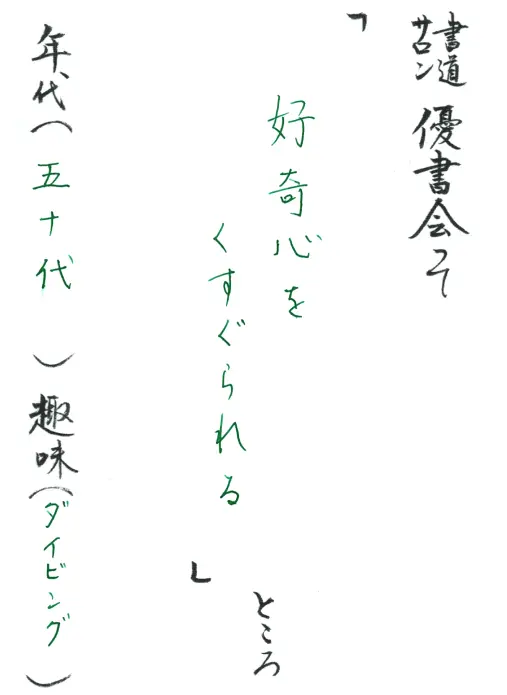 書道サロン 優書会って
「
好奇心を
くすぐられる
」
ところ
年代(五十代 )趣味(ダイビング)